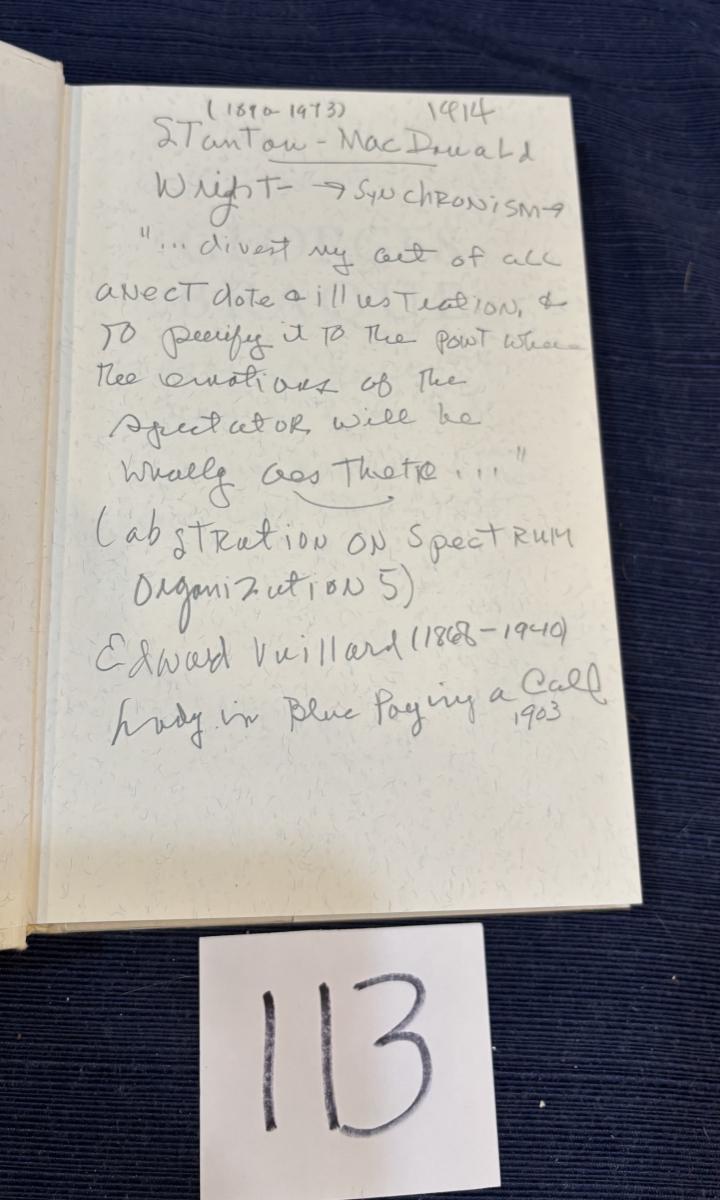 (1890-1973) 1914
STanton-MacDonald
Wright- → SYNCHRONISM→
"... divest my art of all
anectdote & illustration, &
to purify it to the point where
the emotions of the
spectator will be
wholly aesthetic ..."
(abstration on Spectrum
Organization 5)
Edward Vuillard (1868-1940)
Lady in Blue Paying a Call
1903
113